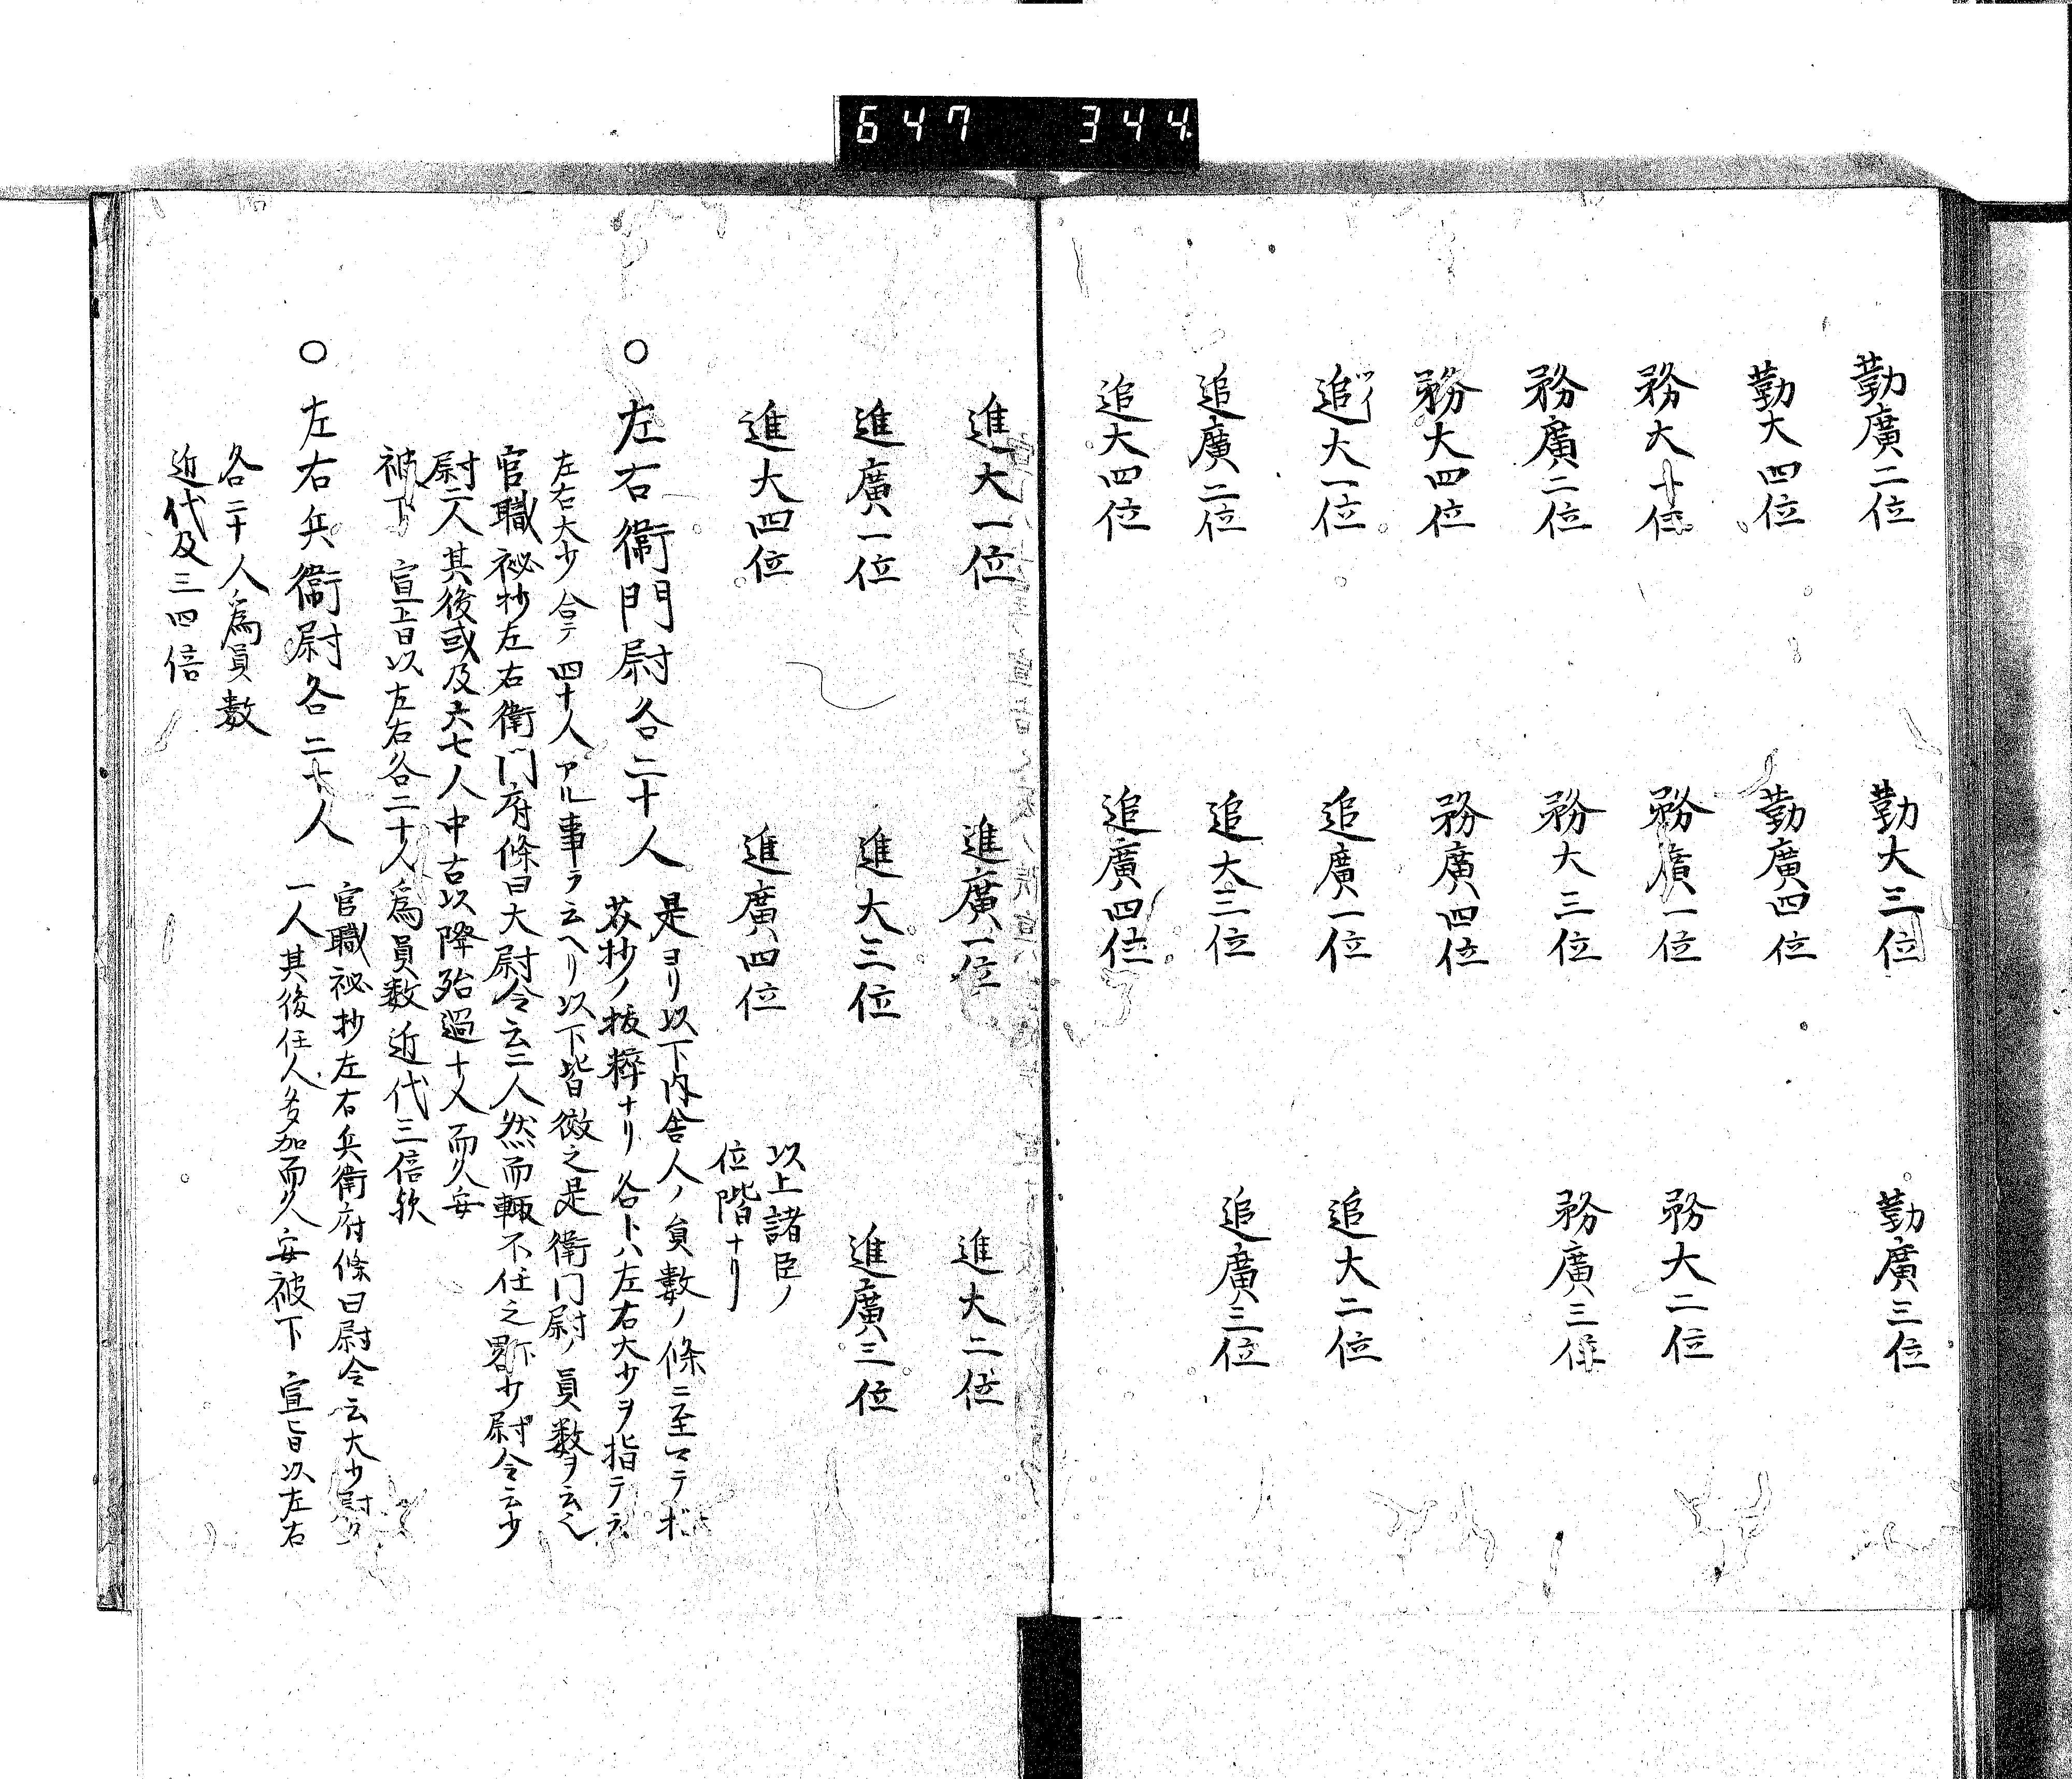 647 344
勤廣二位 勤大三位 勤廣三位
勤大四位 勤廣四位
務大十位 務廣一位 務大二位
務廣二位 務大三位 務廣三位
務大四位 務廣四位
追大一位 追廣一位 追大二位
追廣二位 追大三位 追廣三位
追大四位 追廣四位
進大一位 進廣一位 進大二位
進廣一位 進大三位 進廣三位
進大四位 進廣四位 以上諸臣ノ
位階ナリ
○左右衞門尉各二十人
是ヨリ以下内舎人ノ員數ノ條ニ至マテ
抄ノ抜粹ナリ各トハ左右大少ヲ指テ云
左右大少合テ四十人アル事ヲ云ヘリ以下皆微之是衛門尉ノ員数ヲ云
官職祕抄左右衛門府條曰大尉令云二人然而輙不任之少尉令云少
尉二人其後或及六七人中古以降殆過十人而久安
被下 宣旨以左右各二十人爲員数近代三倍欤
○左右兵衞尉各二十人
官職祕抄左右兵衛府條曰尉令云大少尉
一人其後任人多加而久安被下 宣旨以左右
各二十人爲員數
近代及三四倍